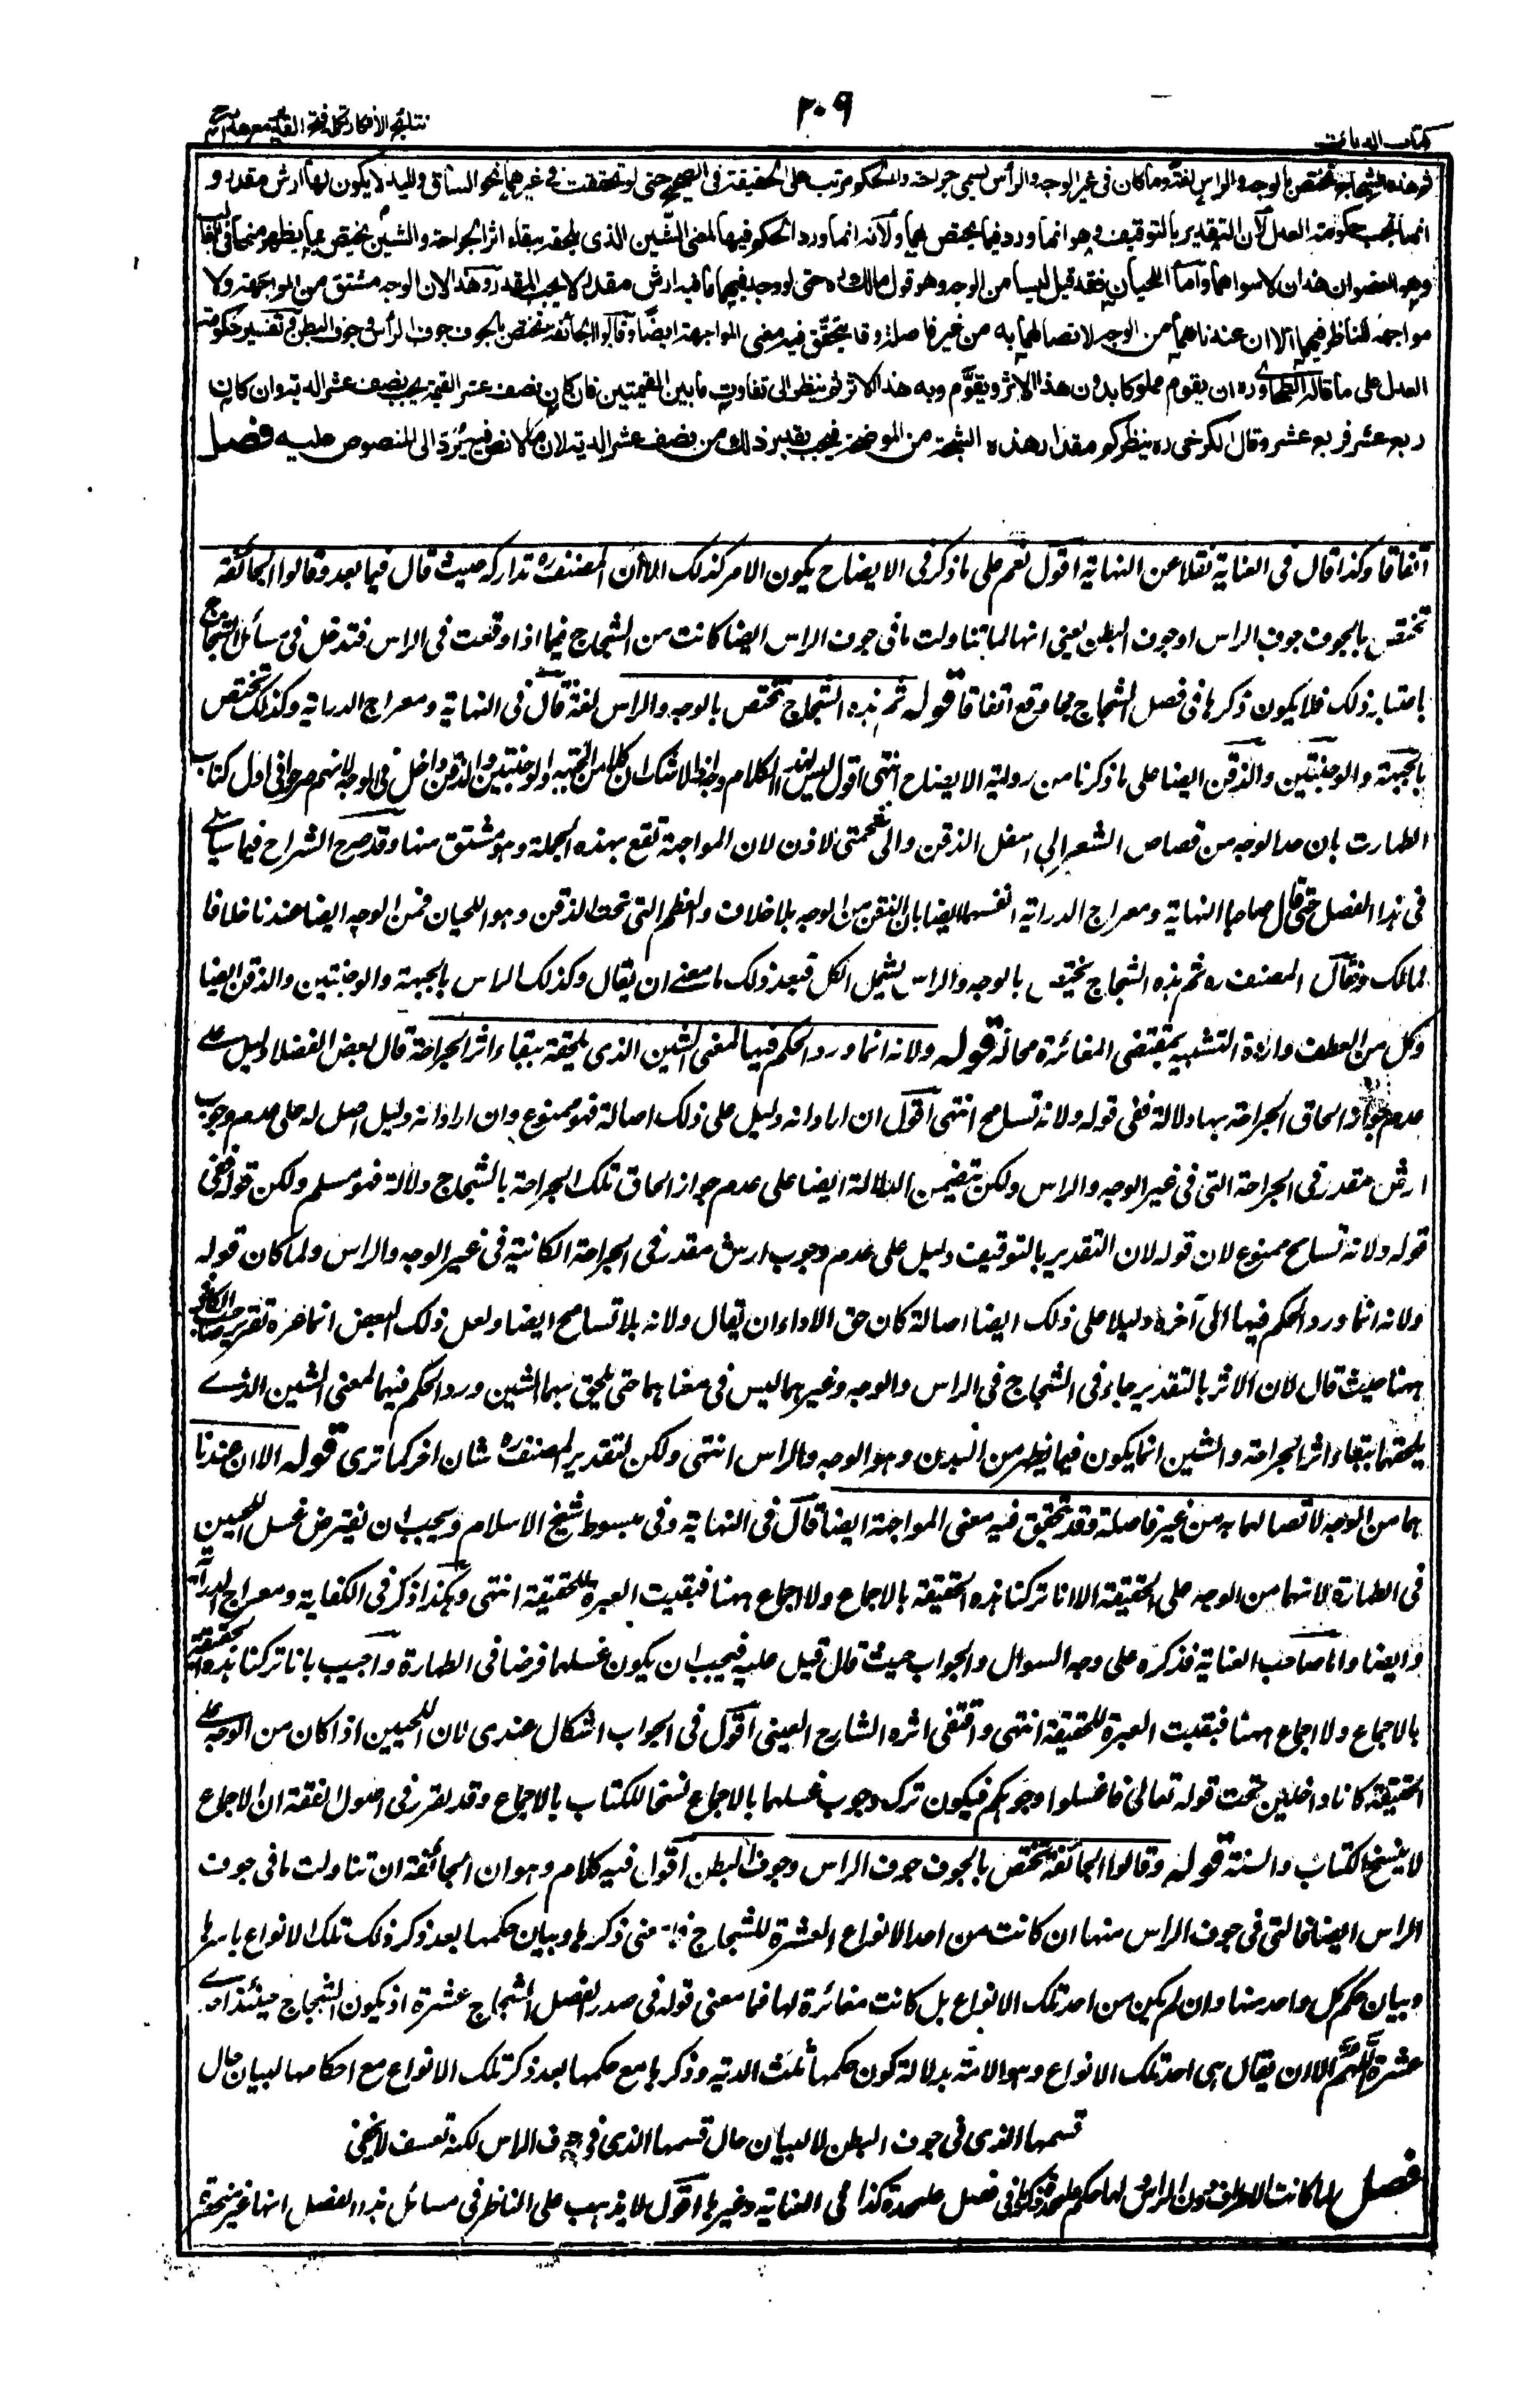 ٣٠٩
نتائج الأفكار تكملة فتح القدير مع هداية
كتاب الديات
ثم هذه الشجاج تختص بالوجه والرأس لغة وما كان في غير الوجه والرأس يسمى جراحة والحكم مرتب على الحقيقة في الصحيح حتى لو تحققت في غيرهما نحو الساق واليد لا يكون لها ارش مقدر و
انما تجب حكومة العدل لان التقدير بالتوقيف وهو انما ورد فيما يختص بهما ولانه انما ورد الحكم فيها لمعنى الشين الذي يلحقه ببقاء اثر الجراحة والشين يختص بما يظهر منها في الغالب
وهو العضوان هذان لا سواهما واما اللحيان فقد قيل ليسا من الوجه وهو قول مالك ره حتى لو وجد فيهما ما فيه ارش مقدر لا يجب المقدر وهذا لان الوجه مشتق من المواجهة ولا
مواجهة للناظر فيهما الا ان عندنا هما من الوجه لاتصالهما به من غير فاصلة وقد يتحقق فيه معنى المواجهة ايضا وقالوا الجائفة تختص بالجوف جوف الرأس وجوف البطن وتفسير حكومة
العدل على ما قاله الطحاوي ره ان يقوم مملوكا بدون هذا الاثر ويقوم وبه هذا الاثر ثم ينظر الى تفاوت ما بين القيمتين فان كان نصف عشر القيمة يجب نصف عشر الدية وان كان
ربع عشر فربع عشر وقال الكرخي ره ينظر كم مقدار هذه الشجة من الموضحة فيجب بقدر ذلك من نصف عشر الدية لان ما لا نص فيه يرد الى المنصوص عليه فصل
اتفاقا وكذا قال في العناية نقلا عن النهاية اقول نعم على ما ذكر في الايضاح يكون الامر كذلك الا ان المصنف ره تداركه حيث قال فيما بعد وقالوا الجائفة
تختص بالجوف جوف الراس او جوف البطن يعني انها لما تناولت ما في جوف الراس ايضا كانت من الشجاج فيما اذا وقعت في الراس فتدخل في مسائل الشجاج
باعتبار ذلك فلا يكون ذكرها في فصل الشجاج مما وقع اتفاقا قوله ثم هذه الشجاج تختص بالوجه والراس لغة قال في النهاية ومعراج الدراية وكذلك تختص
بالجبهة والوجنتين والذقن ايضا على ما ذكرنا من رواية الايضاح انتهى اقول ليس لهذا الكلام وجه اذ لا شك ان كلا من الجبهة والوجنتين والذقن داخل في الوجه لانهم صرحوا في اول كتاب
الطهارت بان حد الوجه من قصاص الشعر الى اسفل الذقن والى شحمتي الاذن لان المواجهة تقع بهذه الجملة وهو مشتق منها وقد صرح الشراح فيما سياتي
في هذا الفصل حتى قال صاحبا النهاية ومعراج الدراية انفسهما ايضا بان الذقن من الوجه بلا خلاف والعظم التي تحت الذقن وهو اللحيان فمن الوجه ايضا عندنا خلافا
لمالك وقال المصنف ره ثم هذه الشجاج يختص بالوجه والراس يشمل الكل فبعد ذلك ما معنى ان يقال وكذلك الراس بالجبهة والوجنتين والذقن ايضا
وكل من العطف واداة التشبيه يقتضي المغائرة محالة قوله ولانه انما ورد الحكم فيها لمعنى الشين الذي يلحقه ببقاء اثر الجراحة قال بعض الفضلا دليل على
عدم جواز الحاق الجراحة بها دلالة ففي قوله ولانه تسامح انتهى اقول ان اراد انه دليل على ذلك اصالة فهو ممنوع وان اراد انه دليل اصل له على عدم وجوب
ارش مقدر في الجراحة التي في غير الوجه والراس ولكن يتضمن الدلالة ايضا على عدم جواز الحاق تلك الجراحة بالشجاج دلالة فهو مسلم ولكن قوله ففي
قوله ولانه تسامح ممنوع لان قوله لان التقدير بالتوقيف دليل على عدم وجوب ارش مقدر في الجراحة الكائنة في غير الوجه والراس ولما كان قوله
ولانه انما ورد الحكم فيها الى آخره دليلا على ذلك ايضا اصالة كان حق الاداء ان يقال ولانه بلا تسامح ايضا ولعل ذلك البعض انما غره تقرير صاحب الكافي
ههنا حيث قال لان الاثر بالتقدير جاء في الشجاج في الراس والوجه وغيرهما ليس في معناهما حتى يلحق بهما الشين ورد الحكم فيها لمعنى الشين الذي
يلحقها ببقاء اثر الجراحة والشين انما يكون فيما يظهر من البدن وهو الوجه والراس انتهى ولكن لتقدير المصنف ره شان اخر كما ترى قوله الا ان عندنا
هما من الوجه لاتصالهما به من غير فاصلة وقد يتحقق فيه معنى المواجهة ايضا قال في النهاية وفي مبسوط شيخ الاسلام ويجب ان يفترض غسل اللحيين
في الطهارة لانهما من الوجه على الحقيقة الا انا تركنا هذه الحقيقة بالاجماع ولا اجماع ههنا فبقيت العبرة للحقيقة انتهى وهكذا ذكر في الكفاية ومعراج الدراية
وايضا واما صاحب العناية فذكره على وجه السوال والجواب حيث قال قيل عليه فيجب ان يكون غسلهما فرضا في الطهارة واجيب بانا تركنا هذه الحقيقة
بالاجماع ولا اجماع ههنا فبقيت العبرة للحقيقة انتهى واقتفى اثره الشارح العيني اقول في الجواب اشكال عندي لان اللحيين اذا كان من الوجه على
الحقيقة كانا داخلين تحت قوله تعالى فاغسلوا وجوهكم فيكون ترك وجوب غسلهما بالاجماع نسخا للكتاب بالاجماع وقد تقرر في اصول الفقه ان الاجماع
لا ينسخ الكتاب والسنة قوله وقالوا الجائفة تختص بالجوف جوف الراس وجوف البطن اقول فيه كلام وهو ان الجائفة ان تناولت ما في جوف
الراس ايضا فالتي في جوف الراس منها ان كانت من احد الانواع العشرة للشجاج معنى ذكرها وبيان حكمها بعد ذكر ذلك تلك الانواع باسرها
وبيان حكم كل واحد منها وان لم يكن من احد تلك الانواع بل كانت مغائرة لها فما معنى قوله في صدر الفصل الشجاج عشرة اذ يكون الشجاج حينئذ احدى
عشرة اللهم الا ان يقال هي احد تلك الانواع وهو الامة بدلالة كون حكمها ثلث الدية وذكرها مع حكمها بعد ذكر تلك الانواع مع احكامها لبيان حال
قسمها الذي في جوف البطن لا لبيان حال قسمها الذي في جوف الراس لكنه تعسف لا يخفى
فصل لما كانت الاطراف دون الراس لها حكم على حدة ذكرها في فصل على حدة كذا في العناية وغيرها اقول لا يذهب على الناظر في مسائل هذا الفصل انها غير منحصرة